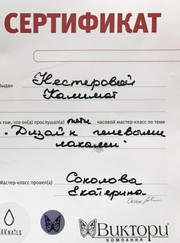 СЕРТИФИКАТ
Выдан Нестеровой
Калимат
в том, что он(а) прослушал(а) пяти часовой мастер-класс по теме
"Дизайн гелевыми
лаками"
Мастер-класс провел(а) Соколова
Екатерина
Виктори
КОМПАНИЯ